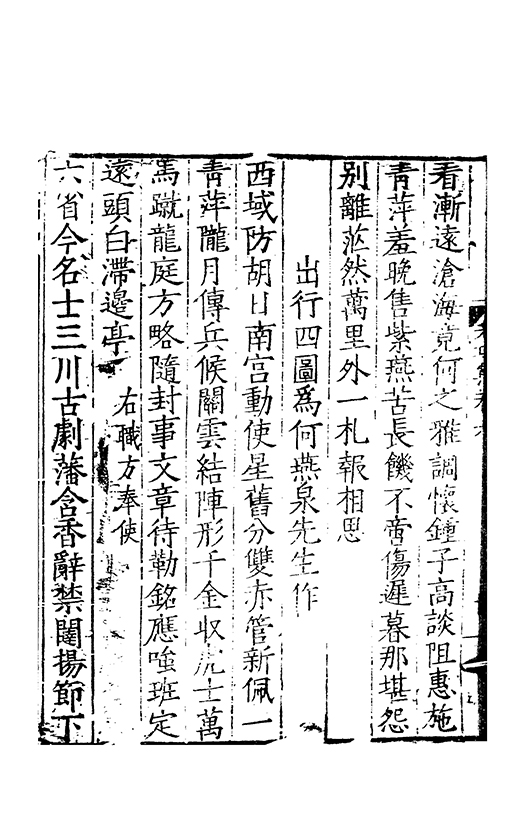 看漸遠滄海竟何之雅調懷鍾子高談阻惠施
青萍羞晚售紫燕苦長饑不啻傷遲暮那堪怨
別離茫然萬里外一札報相思
出行四圖為何燕泉先生作
西域防胡日南宮動使星舊分雙赤管新佩一
青萍隴月傳兵候關雲結陣形千金收虎士萬
馬蹴龍庭方略隨封事文章待勒銘應嗤班定
遠頭白滯邊亭 右職方奉使
六省今名士三川古劇藩含香辭禁闥揚節下